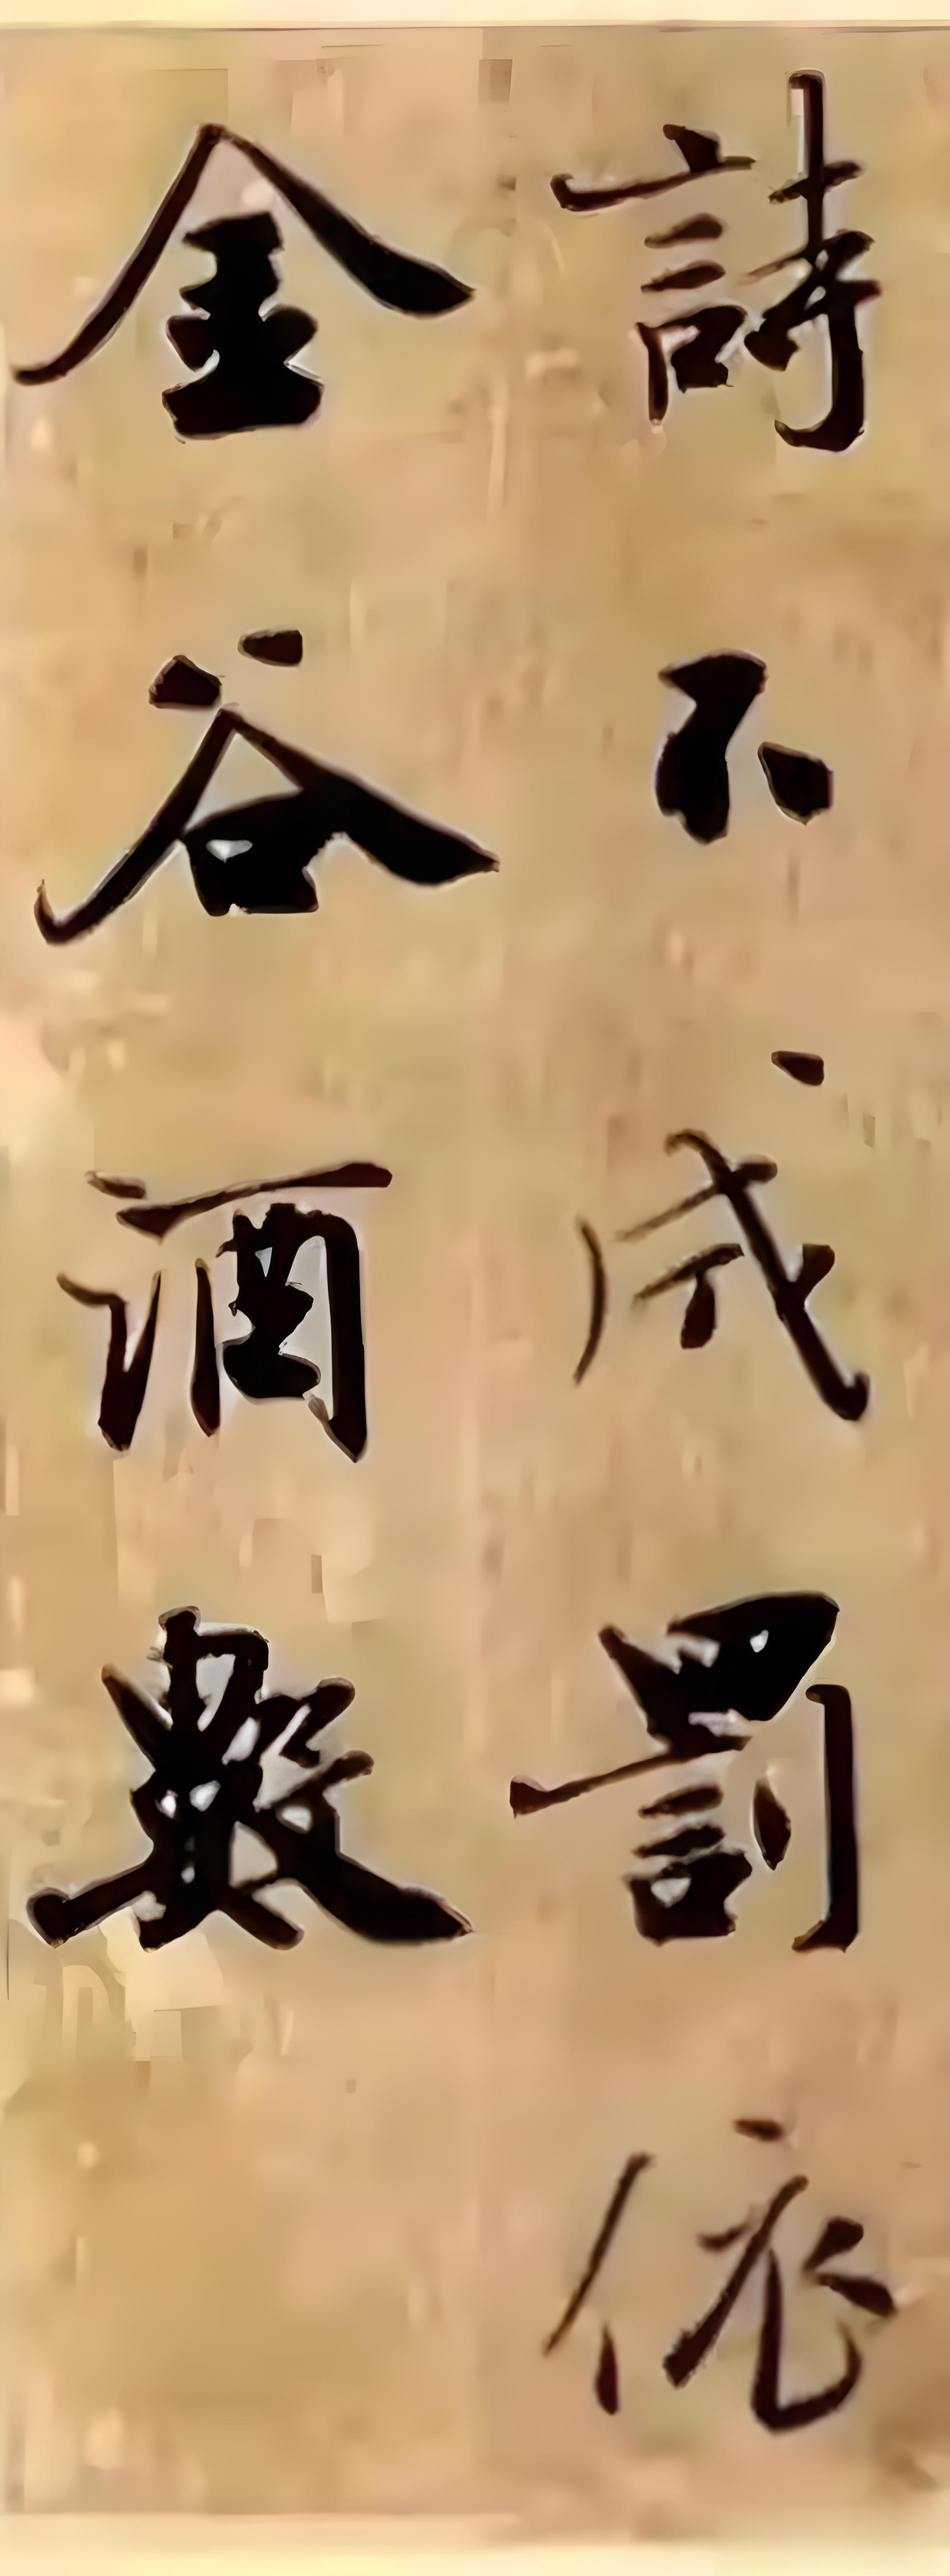 詩不成罰依
金谷酒數